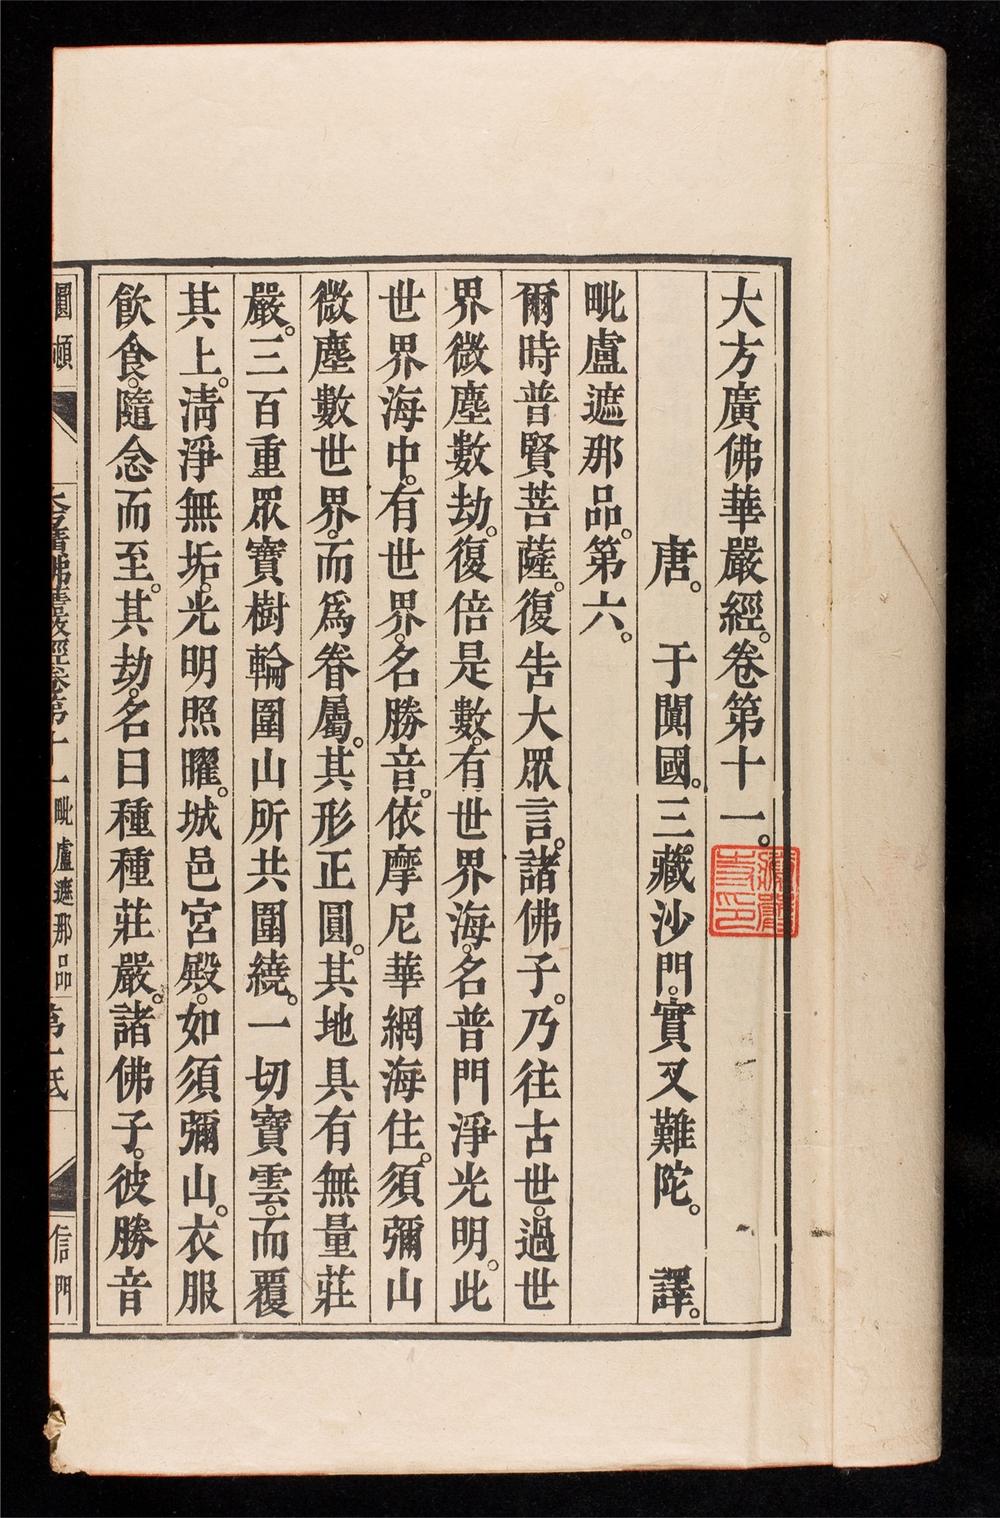 大方廣佛華嚴經。卷第十一。
唐。于闐國。三藏沙門。實叉難陀。譯。
毗盧遮那品。第六。
爾時普賢菩薩。復告大眾言。諸佛子。乃往古世。過世
界微塵數劫。復倍是數。有世界海。名普門淨光明。此
世界海中。有世界。名勝音。依摩尼華網海住。須彌山
微塵數世界。而為眷屬。其形正圓。其地具有無量莊
嚴。三百重眾寶樹輪圍山所共圍繞。一切寶雲。而覆
其上。清淨無垢。光明照曜。城邑宮殿。如須彌山。衣服
飲食。隨念而至。其劫。名曰種種莊嚴。諸佛子。彼勝音
圓頓
大方廣佛華嚴經卷第十一
毗盧遮那品
信門